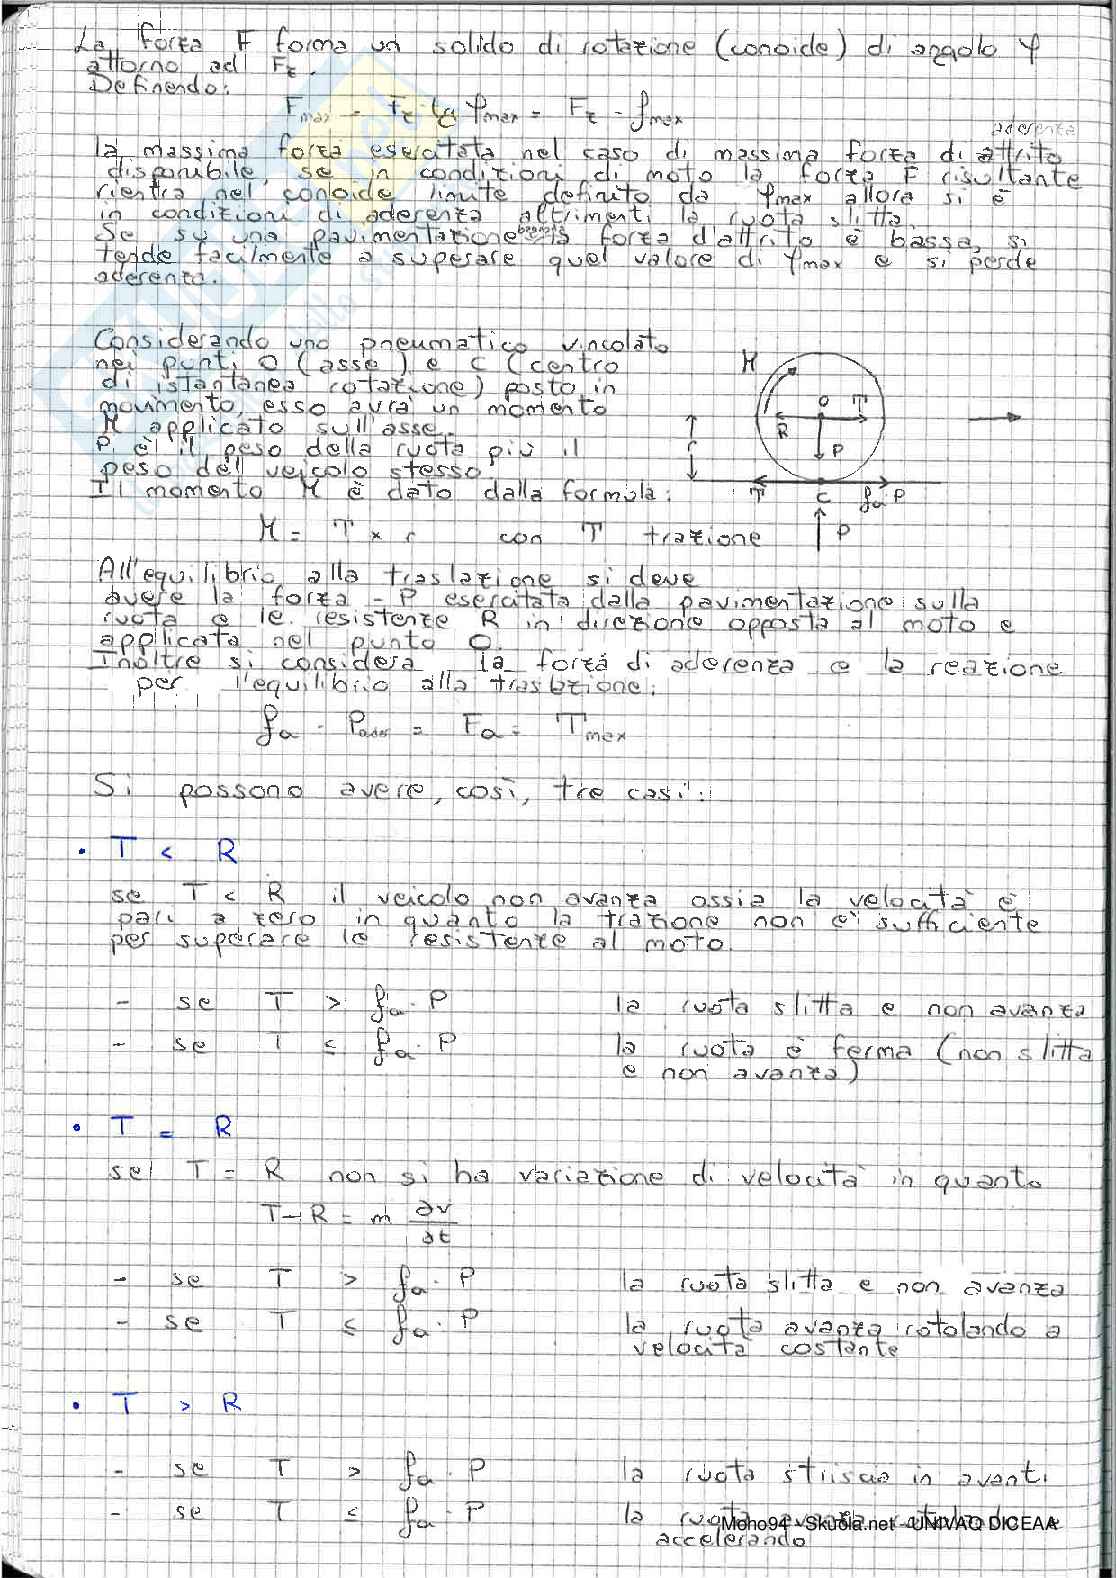 La forza F forma un solido di rotazione (conoide) di angolo φ
attorno ad Fz.
Definendo:
Fmax = Fz · tg φmax = Fz · fmax
aderenza
la massima forza esercitata nel caso di massima forza di attrito
disponibile, se in condizioni di moto la forza F risultante
rientra nel conoide limite definito da φmax allora si è
in condizioni di aderenza altrimenti la ruota slitta.
Se su una pavimentazione bagnata la forza d'attrito è bassa, si
tende facilmente a superare quel valore di φmax e si perde
aderenza.
Considerando uno pneumatico vincolato
nei punti O (asse) e C (centro
di istantanea rotazione) posto in
movimento, esso avrà un momento
M applicato sull'asse.
P è il peso della ruota più il
peso dell veicolo stesso.
Il momento M è dato dalla formula:
M = T × r con T trazione
M
O
T
R
P
r
T
C
fa·P
P
All'equilibrio alla traslazione si deve
avere la forza -P esercitata dalla pavimentazione sulla
ruota e le resistenze R in direzione opposta al moto e
applicata nel punto O.
Inoltre si considera la forza di aderenza e la reazione
per l'equilibrio alla traslazione:
fa · Pader = Fa = Tmax
Si possono avere, così, tre casi:
• T < R
se T < R il veicolo non avanza ossia la velocità è
pari a zero in quanto la trazione non è sufficiente
per superare le resistenze al moto.
- se T > fa·P la ruota slitta e non avanza
- se T ≤ fa·P la ruota è ferma (non slitta
e non avanza)
• T = R
se T = R non si ha variazione di velocità in quanto
T-R = m ∂v/∂t
- se T > fa·P la ruota slitta e non avanza
- se T ≤ fa·P la ruota avanza rotolando a
velocità costante
• T > R
- se T > fa·P la ruota striscia in avanti
- se T ≤ fa·P la ruota
accelerando
Moho94 - Skuola.net - UNIVAQ DICEAA